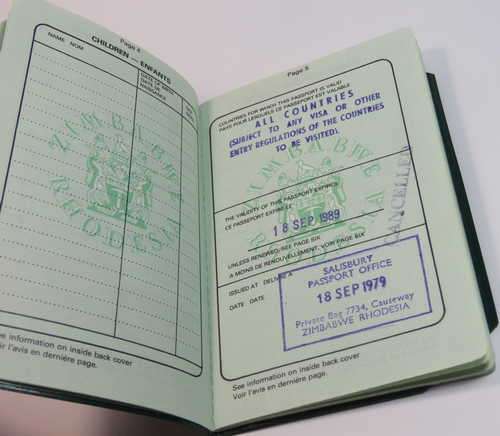 Page 4
CHILDREN — ENFANTS
NAME NOM
DATE OF BIRTH
DATE DE
NAISSANCE
ZIMBABWE
RHODESIA
See information on inside back cover
Voir l'avis en dernière page.
Page 5
COUNTRIES FOR WHICH THIS PASSPORT IS VALID
PAYS POUR LESQUELS CE PASSEPORT EST VALABLE
ALL COUNTRIES
(SUBJECT TO ANY VISA OR OTHER
ENTRY REGULATIONS OF THE COUNTRIES
TO BE VISITED).
ZIMBABWE
RHODESIA
CANCELLED
THE VALIDITY OF THIS PASSPORT EXPIRES
CE PASSEPORT EXPIRE LE
18 SEP 1989
UNLESS RENEWED/SEE PAGE SIX
A MOINS DE RENOUVELLEMENT, VOIR PAGE SIX
ISSUED AT DELIVRÉ A
DATE DATE
SALISBURY
PASSPORT OFFICE
18 SEP 1979
Private Bag 7734, Causeway
ZIMBABWE RHODESIA
See information on inside back cover
Voir l'avis en dernière page.